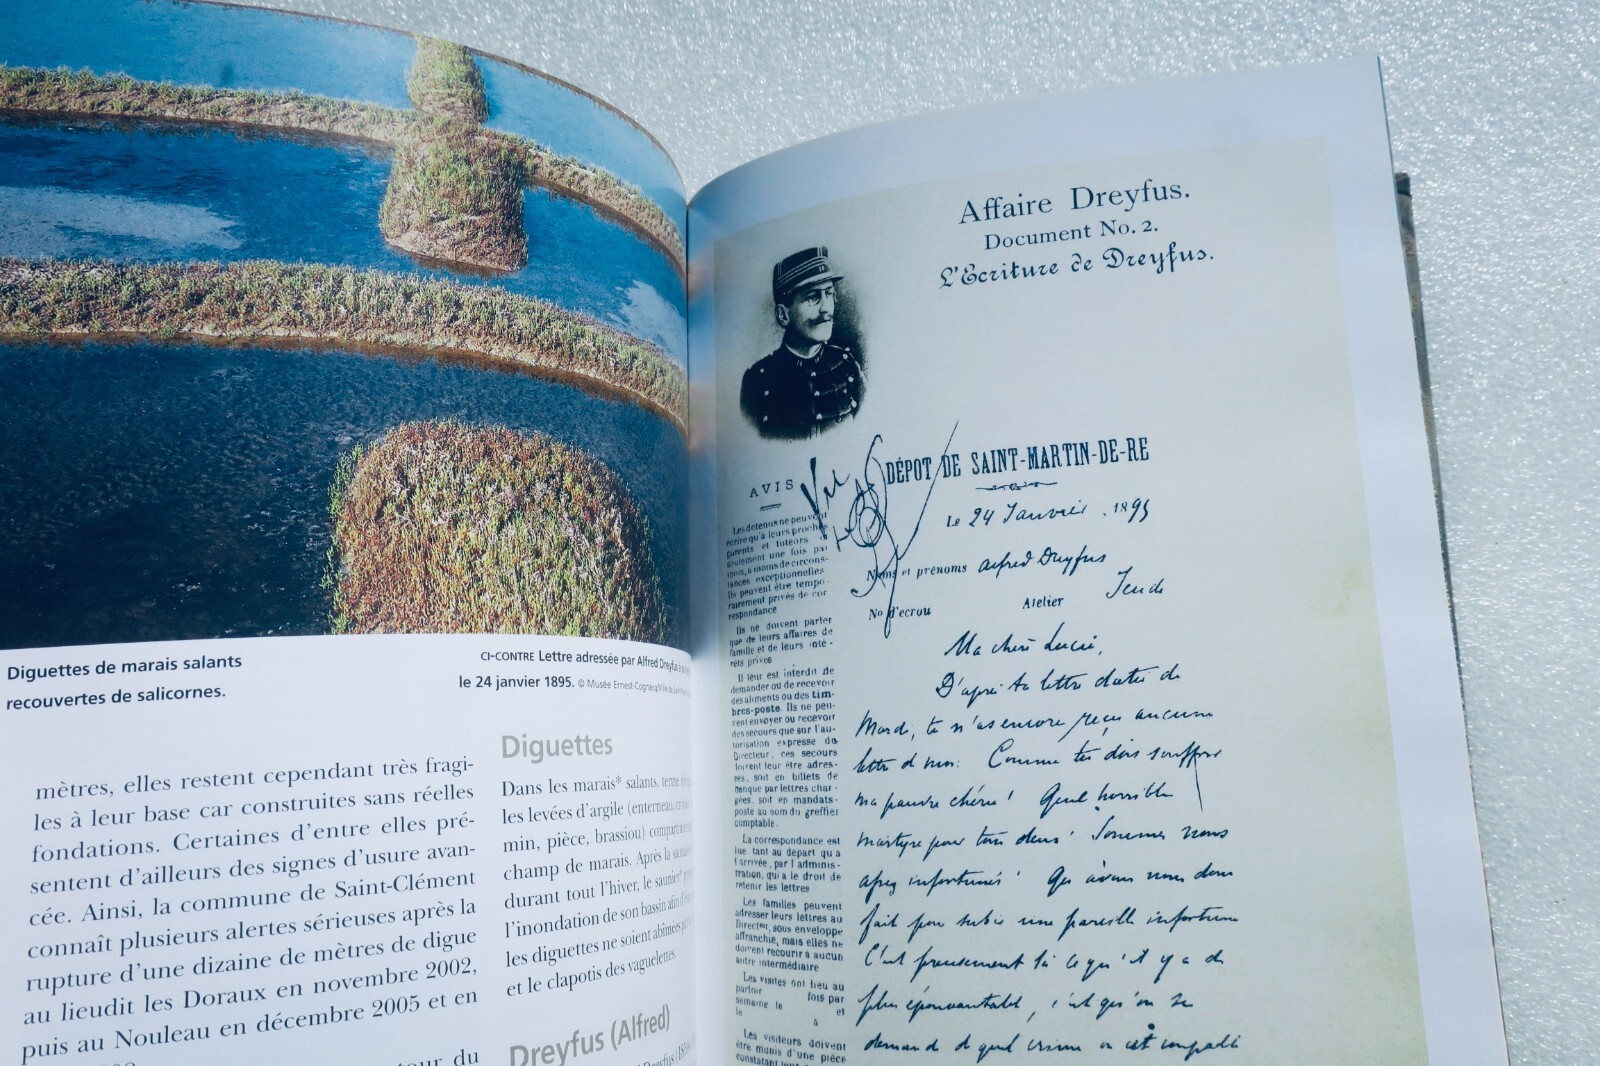 Diguettes de marais salants
recouvertes de salicornes.
CI-CONTRE Lettre adressée par Alfred Dreyfus à
le 24 janvier 1895. © Musée Ernest-Cognacq/Ville de
mètres, elles restent cependant très fragi-
les à leur base car construites sans réelles
fondations. Certaines d'entre elles pré-
sentent d'ailleurs des signes d'usure avan-
cée. Ainsi, la commune de Saint-Clément
connaît plusieurs alertes sérieuses après la
rupture d'une dizaine de mètres de digue
au lieudit les Doraux en novembre 2002,
puis au Nouleau en décembre 2005 et en
tour du
Diguettes
Dans les marais* salants, terme
les levées d'argile (enterneau,
min, pièce, brassiou)
champ de marais. Après la
durant tout l'hiver, le saunier*
l'inondation de son bassin afin
les diguettes ne soient abîmées
et le clapotis des vaguelettes.
Dreyfus (Alfred)
Affaire Dreyfus.
Document No. 2.
L'Ecriture de Dreyfus.
DÉPOT DE SAINT-MARTIN-DE-RE
Le 24 Janvier . 1895
Noms et prénoms Alfred Dreyfus
No d'ecrou Atelier Jeudi
AVIS
Les détenus ne peuvent
écrire qu'à leurs proches
parents et tuteurs
seulement une fois par
mois, à moins de circons-
tances exceptionnelles
Ils peuvent être tempo-
rairement privés de cor
respondance
Ils ne doivent parler
que de leurs affaires de
famille et de leurs inté-
rêts privés
Il leur est interdit de
demander ou de recevoir
des aliments ou des tim-
bres-poste. Ils ne peu-
vent envoyer ou recevoir
des secours que sur l'au-
torisation expresse du
Directeur, ces secours
doivent leur être adres-
sés, soit en billets de
banque par lettres char-
gées, soit en mandats-
poste au nom du greffier
comptable.
La correspondance est
lue, tant au départ qu'à
l'arrivée, par l'adminis-
tration, qui a le droit de
retenir les lettres
Les familles peuvent
adresser leurs lettres au
Directr, sous enveloppe
affranchie, mais elles ne
doivent recourir à aucun
autre intermédiaire
Les visites ont lieu au
parloir fois par
semaine le et
le à
Les visiteurs doivent
être munis d'une pièce
constatant
Ma chère Lucie,
D'après ta lettre datée de
Mardi, tu n'as encore reçu aucune
lettre de moi. Comme tu dois souffrir
ma pauvre chérie! Quel horrible
martyre pour tous deux! Sommes nous
assez infortunés! Qu'avons nous donc
fait pour subir une pareille infortune
C'est précisément là ce qu'il y a de
plus épouvantable, c'est qu'on se
demande de quel crime on est coupable